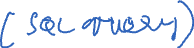 (SQL query)